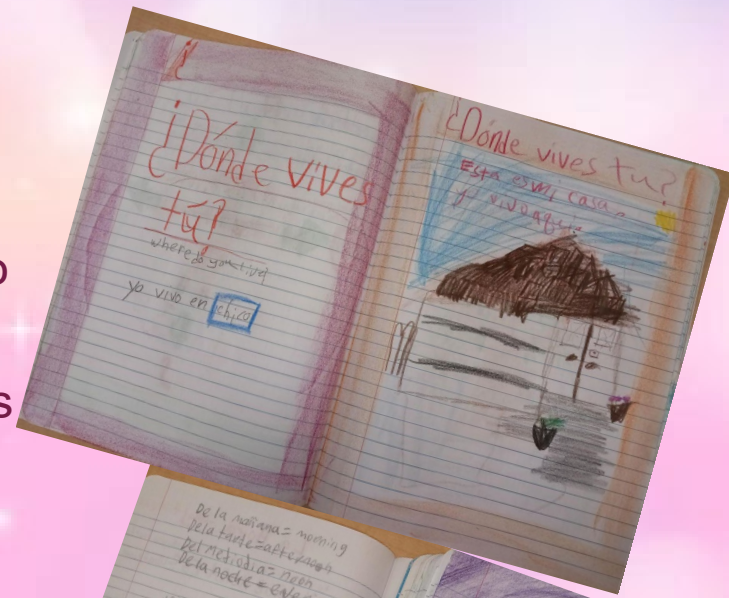 ¿Dónde vives
tú?
where do you live?
yo vivo en chico
¿Dónde vives tu?
Esta es mi casa
y vivo aquí.
De la mañana = morning
De la tarde = afternoon
Del mediodia = noon
De la noche =
o
s